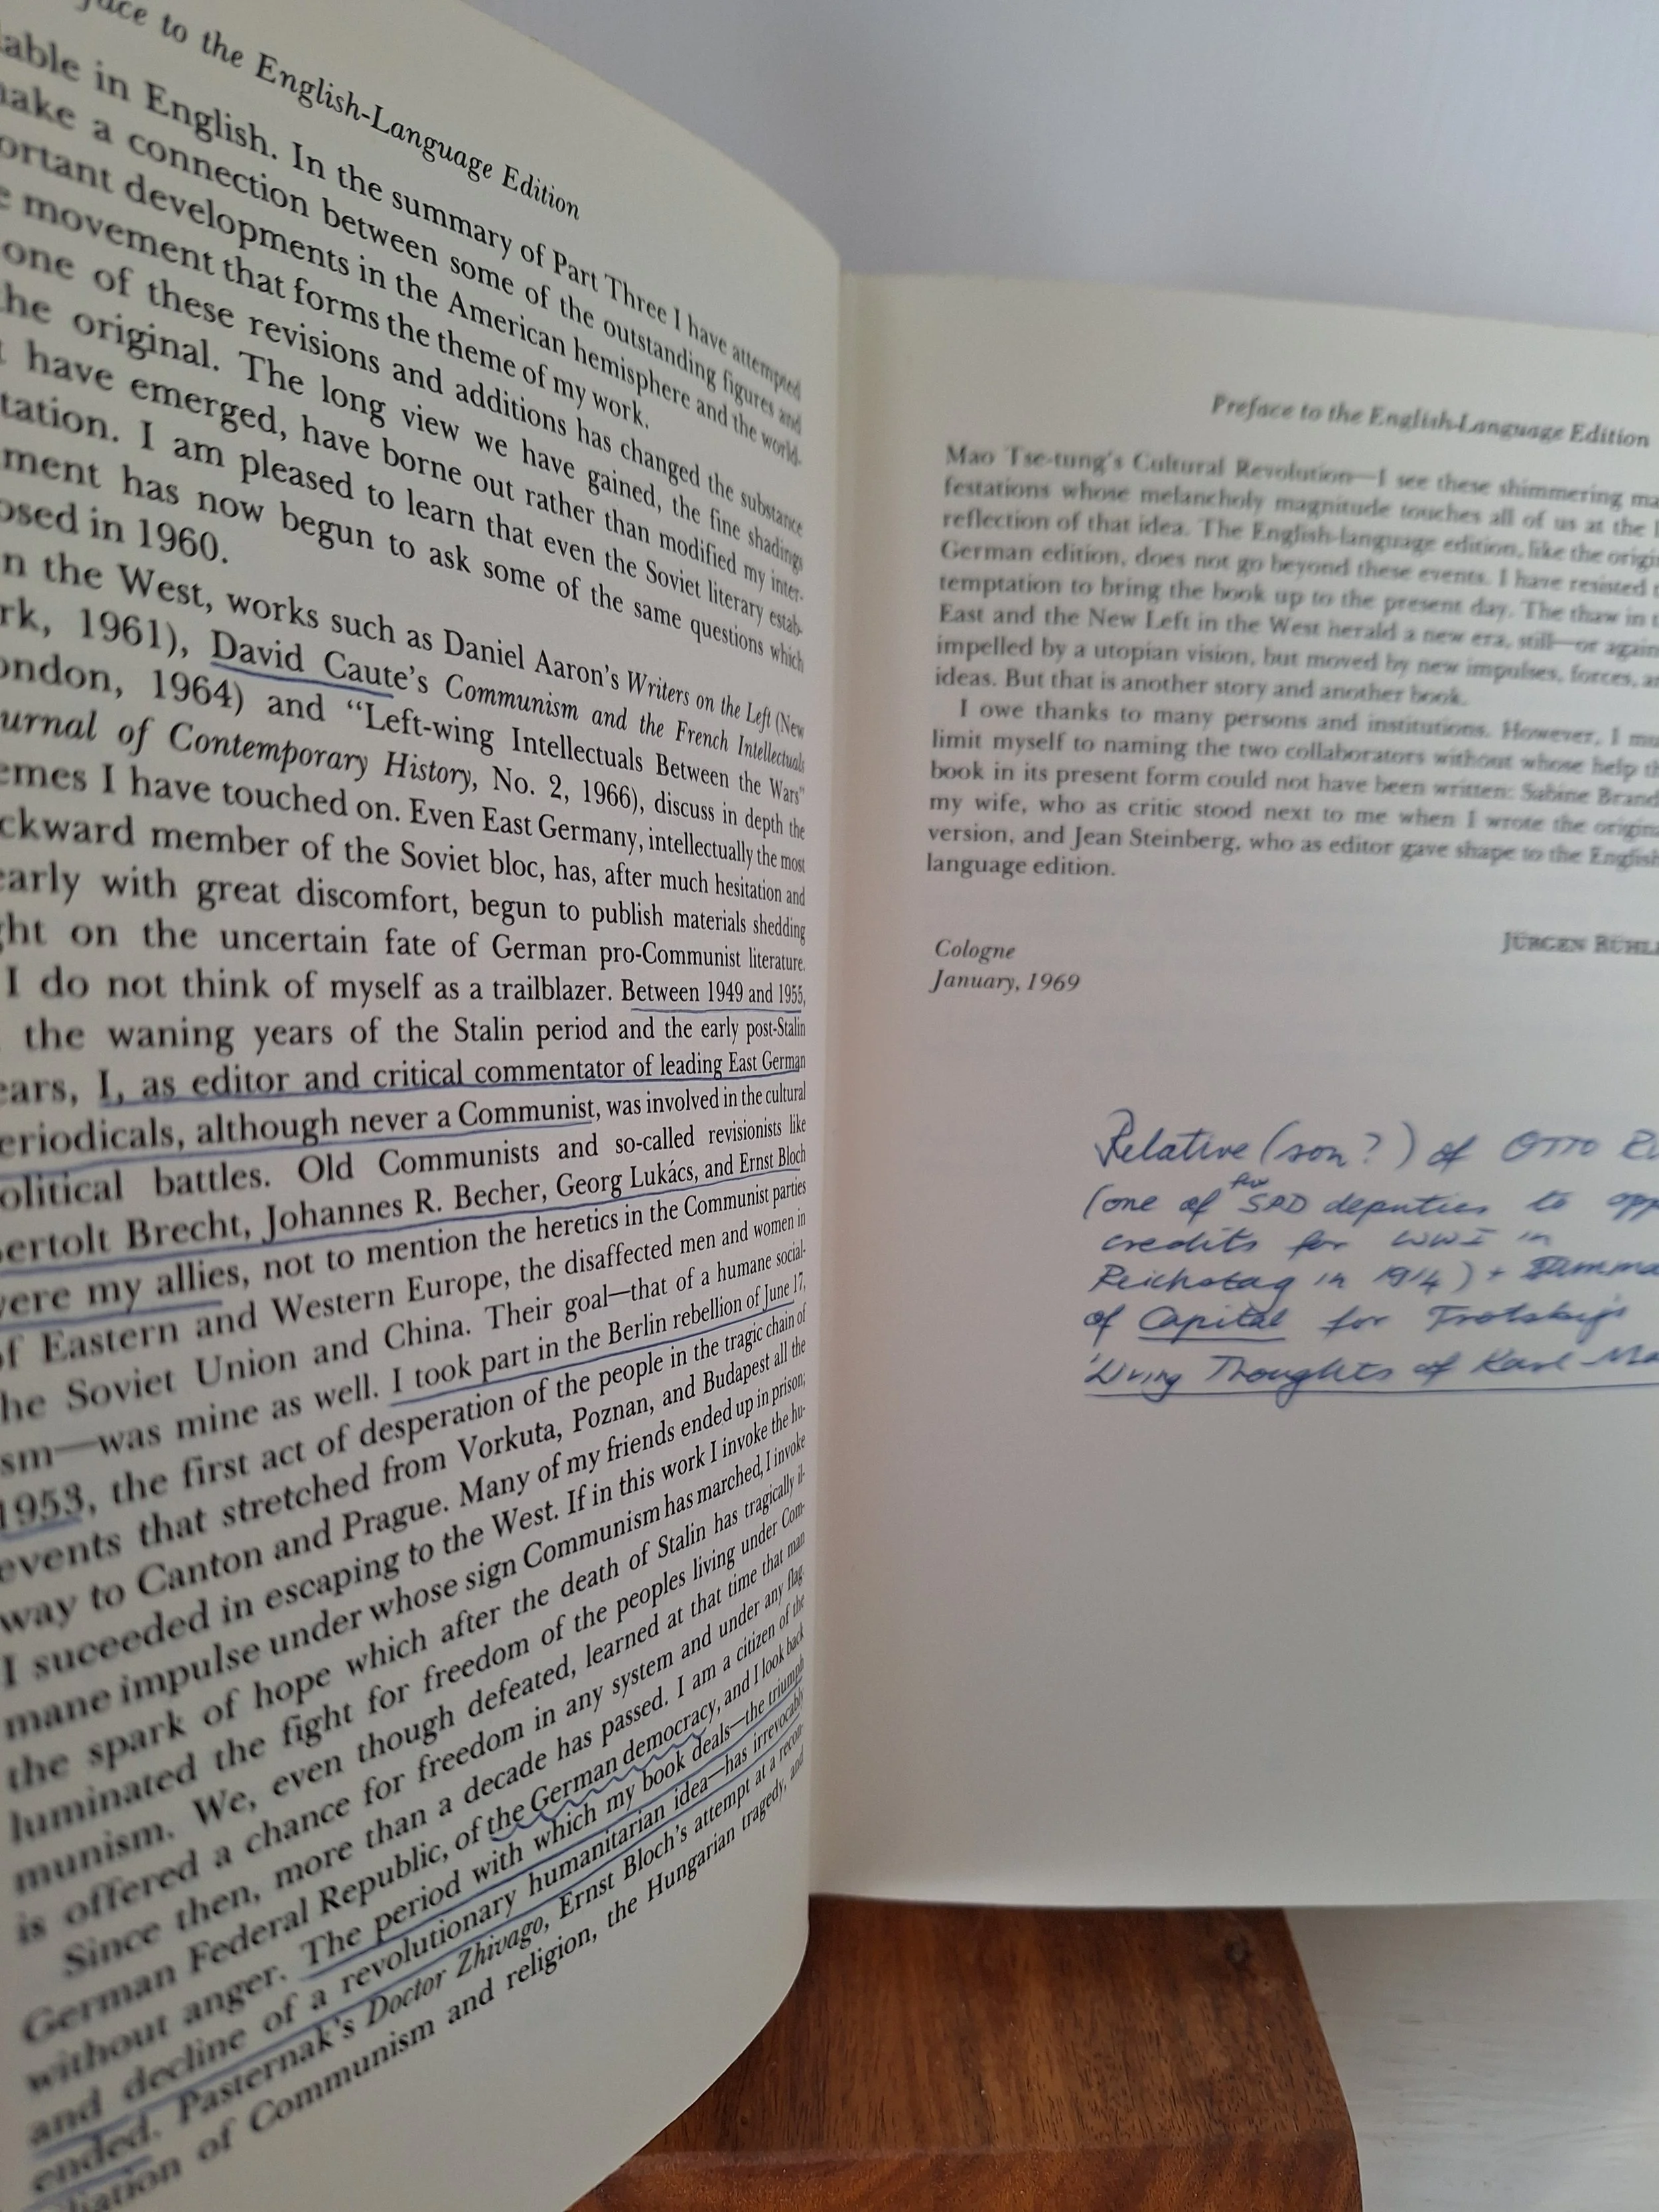 to the English-Language Edition
able in English. In the summary of Part Three I have attempted
ake a connection between some of the outstanding figures and
ortant developments in the American hemisphere and the world-
movement that forms the theme of my work.
one of these revisions and additions has changed the substance
he original. The long view we have gained, the fine shadings
have emerged, have borne out rather than modified my inter-
tation. I am pleased to learn that even the Soviet literary estab-
ment has now begun to ask some of the same questions which
osed in 1960.
n the West, works such as Daniel Aaron's Writers on the Left (New
rk, 1961), David Caute's Communism and the French Intellectuals
ondon, 1964) and "Left-wing Intellectuals Between the Wars"
urnal of Contemporary History, No. 2, 1966), discuss in depth the
emes I have touched on. Even East Germany, intellectually the most
ckward member of the Soviet bloc, has, after much hesitation and
early with great discomfort, begun to publish materials shedding
ght on the uncertain fate of German pro-Communist literature.
I do not think of myself as a trailblazer. Between 1949 and 1955,
the waning years of the Stalin period and the early post-Stalin
ears, I, as editor and critical commentator of leading East German
eriodicals, although never a Communist, was involved in the cultural
olitical battles. Old Communists and so-called revisionists like
ertolt Brecht, Johannes R. Becher, Georg Lukács, and Ernst Bloch
were my allies, not to mention the heretics in the Communist parties
of Eastern and Western Europe, the disaffected men and women in
he Soviet Union and China. Their goal—that of a humane social-
sm—was mine as well. I took part in the Berlin rebellion of June 17,
1953, the first act of desperation of the people in the tragic chain of
events that stretched from Vorkuta, Poznan, and Budapest all the
way to Canton and Prague. Many of my friends ended up in prison;
I suceeded in escaping to the West. If in this work I invoke the hu-
mane impulse under whose sign Communism has marched, I invoke
the spark of hope which after the death of Stalin has tragically il-
luminated the fight for freedom of the peoples living under Com-
munism. We, even though defeated, learned at that time that man
is offered a chance for freedom in any system and under any flag.
Since then, more than a decade has passed. I am a citizen of the
German Federal Republic, of the German democracy, and I look back
without anger. The period with which my book deals—the triumph
and decline of a revolutionary humanitarian idea—has irrevocably
ended. Pasternak's Doctor Zhivago, Ernst Bloch's attempt at a recon-
iliation of Communism and religion, the Hungarian tragedy, and
Preface to the English-Language Edition
Mao Tse-tung's Cultural Revolution—I see these shimmering ma
festations whose melancholy magnitude touches all of us at the
reflection of that idea. The English-language edition, like the origi
German edition, does not go beyond these events. I have resisted
temptation to bring the book up to the present day. The thaw in
East and the New Left in the West herald a new era, still—or again
impelled by a utopian vision, but moved by new impulses, forces, a
ideas. But that is another story and another book.
I owe thanks to many persons and institutions. However, I mu
limit myself to naming the two collaborators without whose help th
book in its present form could not have been written: Sabine Brand
my wife, who as critic stood next to me when I wrote the origin
version, and Jean Steinberg, who as editor gave shape to the English
language edition.
JÜRGEN RÜHL
Cologne
January, 1969
Relative (son?) of OTTO Rü
(one of few SPD deputies to opp
credits for WWI in
Reichstag in 1914) + Summa
of Capital for Trotsky's
'Living Thoughts of Karl Ma